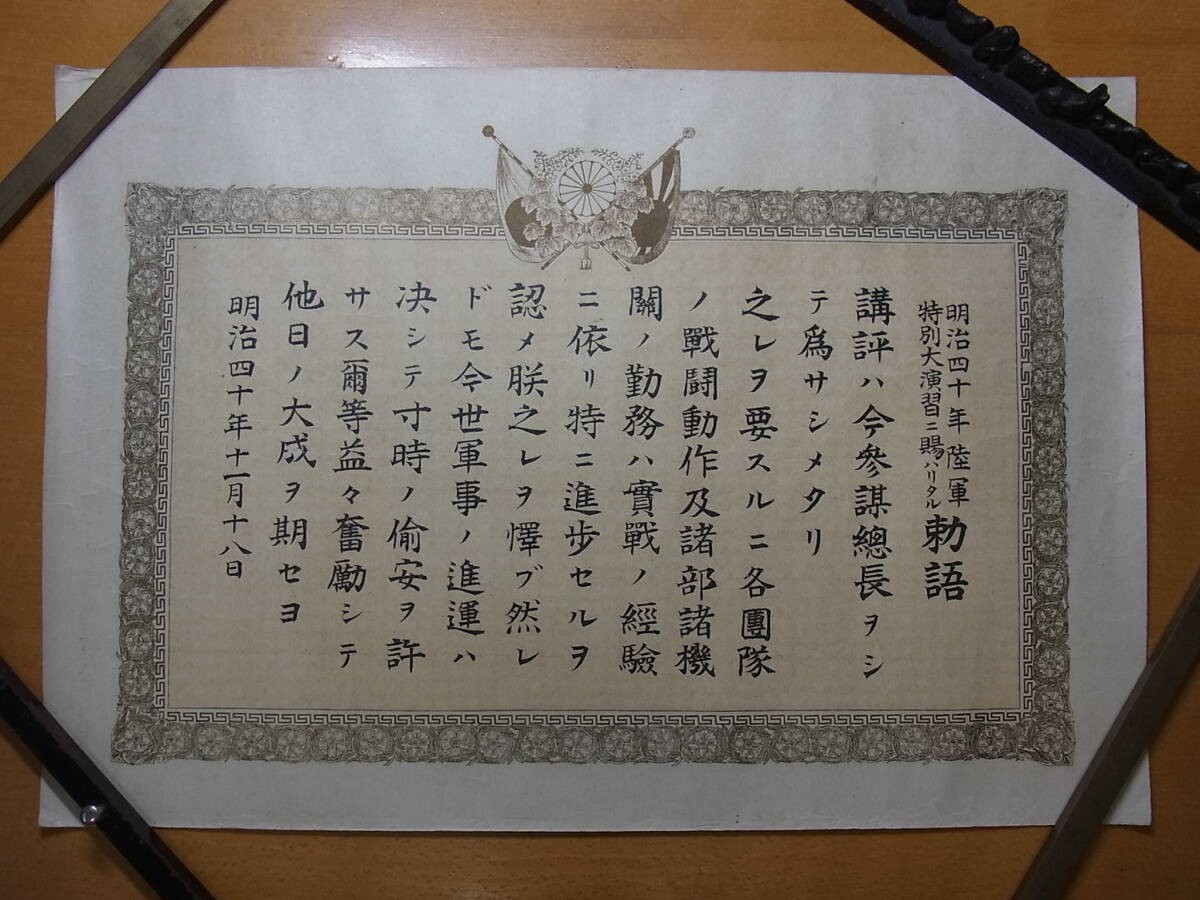 明治四十年陸軍
特別大演習ニ賜ハリタル
勅語
講評ハ今參謀總長ヲシ
テ爲サシメタリ
之レヲ要スルニ各團隊
ノ戰鬪動作及諸部諸機
關ノ勤務ハ實戰ノ經驗
ニ依リ特ニ進步セルヲ
認メ朕之レヲ懌ブ然レ
ドモ今世軍事ノ進運ハ
决シテ寸時ノ偷安ヲ許
サス爾等益々奮勵シテ
他日ノ大成ヲ期セヨ
明治四十年十一月十八日